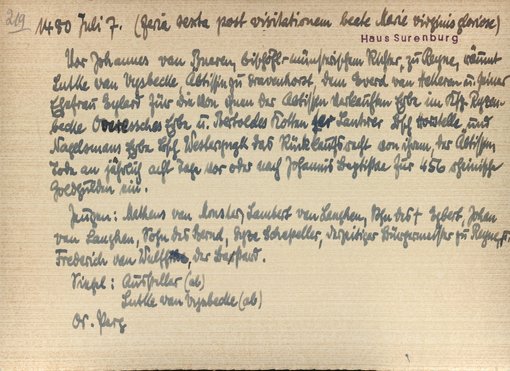 219
1480 Juli 7. (feria sexta post visitationem beate Marie virginis gloriose)
Haus Surenburg
Vor Johannes van Bueren, bischöfl. münsterischen Richter, zu Reyne, räumt
Lutke van Vysbecke Äbtissin zu Gravenhorst, dem Everd van Heteren u. seiner
Ehefrau für die von ihnen der Äbtissin verkauften Erbe im Ksp.
Erbe u. Bertoldes Kotten Bsch. und
Nagelsmans Erbe Bsch. das Rückkaufsrecht von ihrem, der Äbtissin
Tode an jährlich acht Tage vor oder nach Johannis Baptiste für 456 rheinische
Goldgulden ein.
Zeugen: Matheus van Monster, Lambert van Langhen, Sohn des † Egbert, Johan
van Langhen, Sohn des Bernd, derzeitiger Bürgermeister zu Reyne, u.
Frederich van der Bastard.
Siegel: Aussteller (ab)
Lutke van Vysbecke (ab)
Or. Perg.